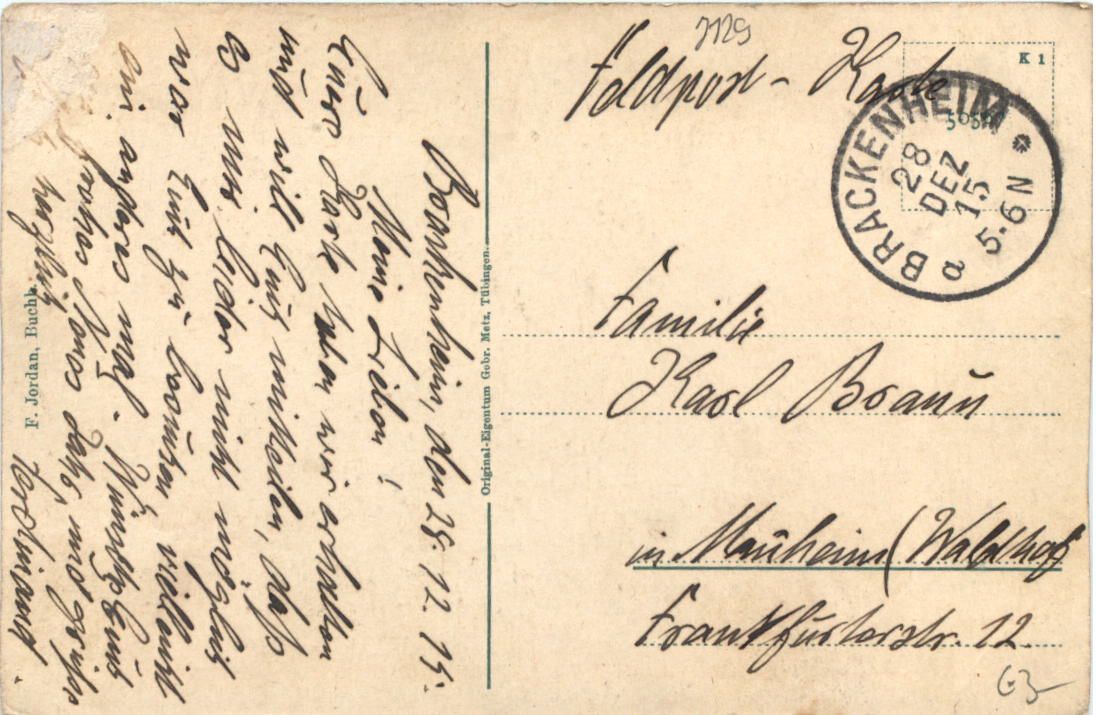 7129
Feldpost-Karte
K 1
BRACKENHEIM
28
DEZ
15
5-6N
a
Familie
Karl Braun
in Manheim (Waldhof
Frankfurterstr. 12.
63
Original-Eigentum Gebr. Metz, Tübingen.
F. Jordan, Buchh.
Brackenheim, den 28. 12. 15.
Meine Lieben!
Eure Karte haben wir erhalten
und will Euch mitteilen, daß
es mir leider nicht möglich
war Euch zu besuchen, vielleicht
ein anderes mal. Wünsche Euch
frohes neues Jahr, und
herzlich
Ferdinand.